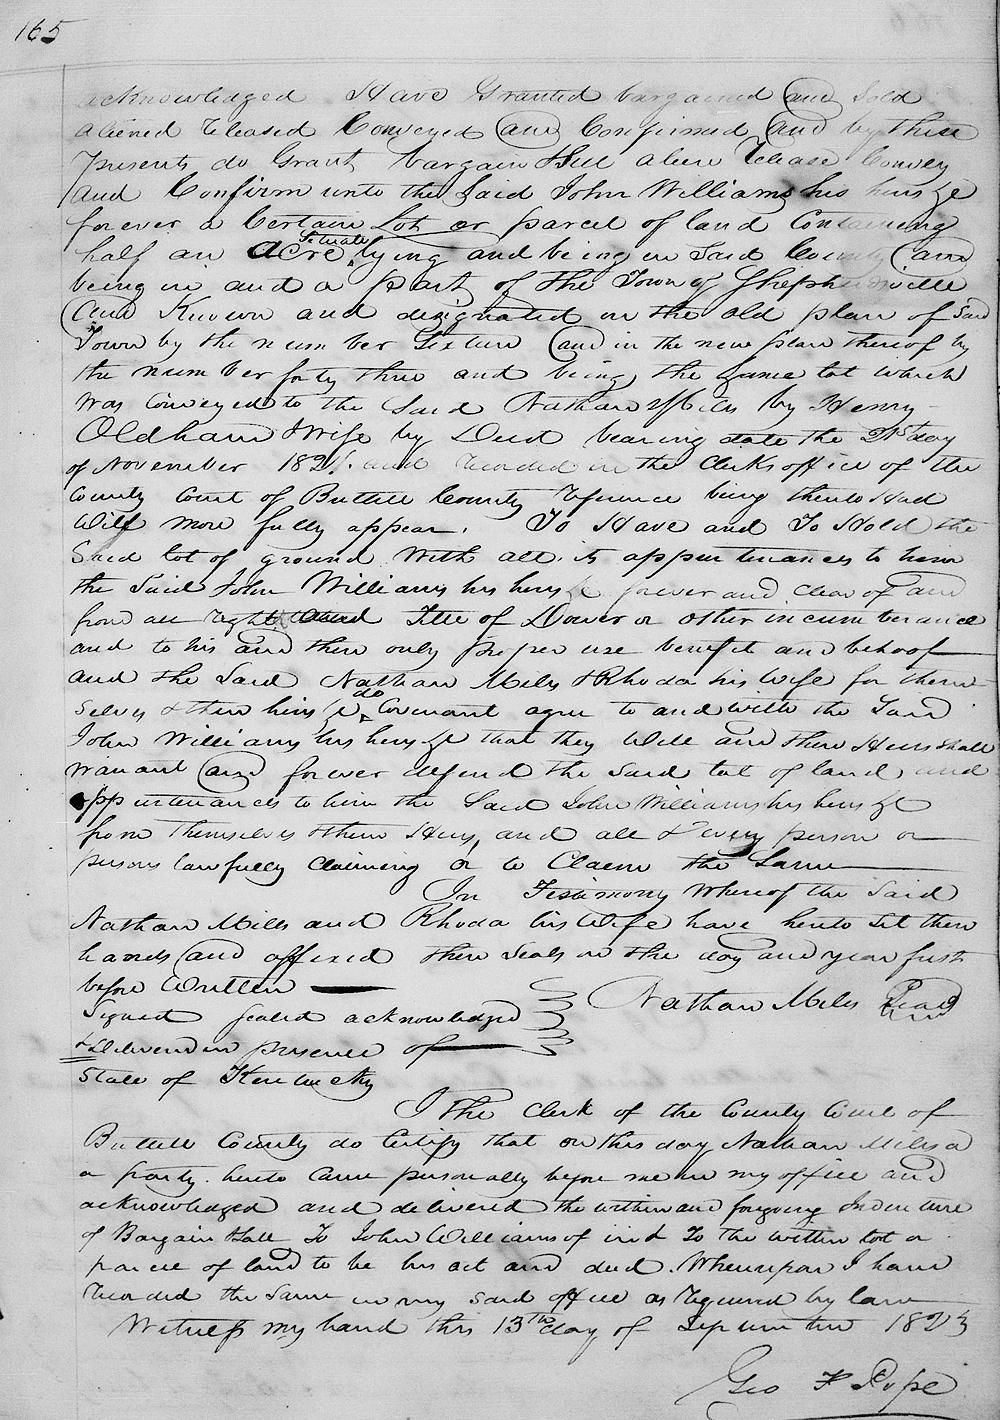 165
acknowledged Have Granted bargained and Sold
aliened released Conveyed and Confirmed and by these
presents do Grant bargain & Sell alien release Convey
and Confirm unto the Said John Williams his heirs &c
forever a Certain Lot or parcel of land Containing
half an acre Situate lying and being in Said County and
being in and a part of the Town of Shepherdsville
and Known and designated on the old plan of Said
Town by the number Sixteen and in the new plan thereof by
the number forty three and being the Same lot which
was Conveyed to the Said Nathan Miles by Henry
Oldham & Wife by Deed bearing date the 21st day
of November 1821. and recorded in the Clerks office of the
County Court of Bullitt County reference being thereto Had
Will more fully appear. To Have and To Hold the
Said lot of ground With all its appurtenances to him
the Said John Williams his heirs &c forever and clear of and
from all right Title of Dower or other incumberance
and to his and their only proper use benefit and behoof
and the Said Nathan Miles & Rhoda his Wife for them
Selves & their heirs &c do Covenant agree to and with the Said
John Williams his heirs &c that they Will and their Heirs Shall
warrant and forever defend the Said lot of land and
appurtenances to him the Said John Williams his heirs &c
from themselves & their Heirs, and all & every person or
persons lawfully claiming or to Claim the Same
In Testimony Whereof the Said
Nathan Miles and Rhoda his Wife have hereto Set their
hands and affixed their Seals on the day and year first
before Written
Nathan Miles Seal
Signed Sealed acknowledged
& Delivered in presence of
State of Kentucky
I The Clerk of the County Court of
Bullitt County do Certify that on this day Nathan Miles a
a party hereto Came personally before me in my office and
acknowledged and delivered the within and foregoing Indenture
of Bargain & Sale To John Williams of and To the within lot or
parcel of land to be his act and deed. Whereupon I have
Recorded the Same in my Said office as required by law
Witness my hand this 13th day of September 1823
Geo F Pope